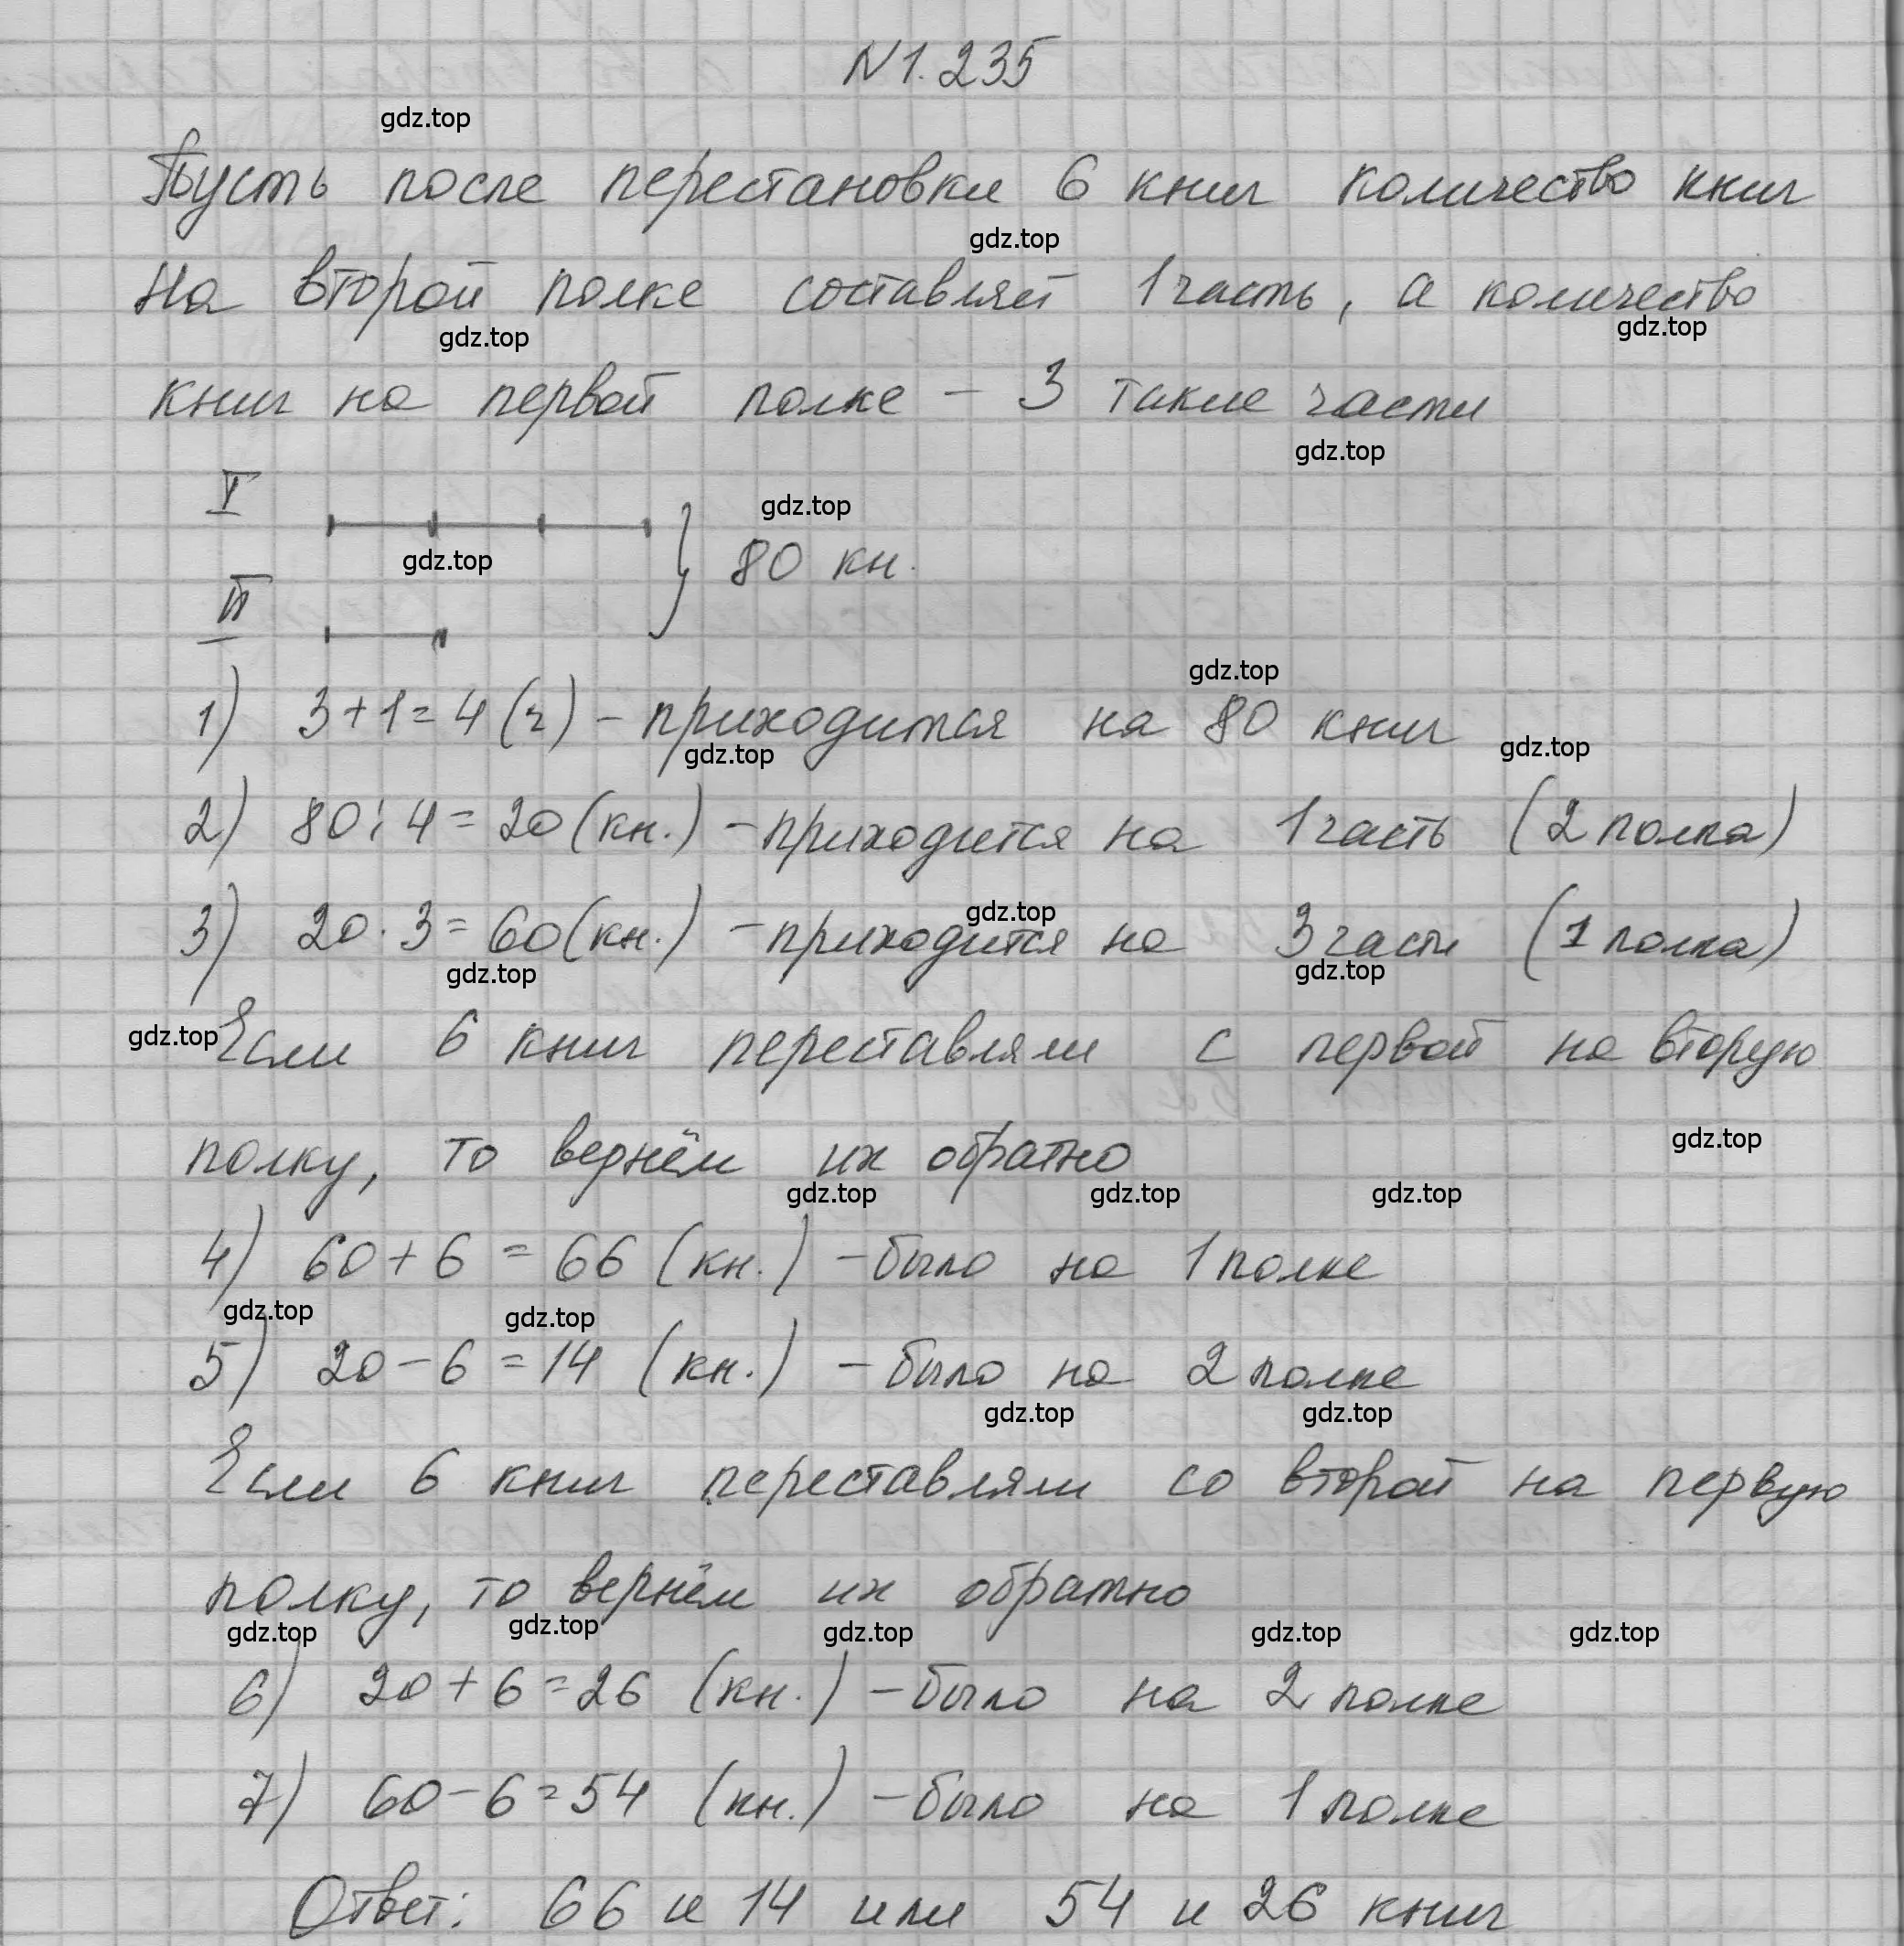 N 1.235
gdz.top
Пусть после перестановки 6 книг количество книг
gdz.top
на второй полке составляет 1 часть, а количество
gdz.top
gdz.top
книг на первой полке – 3 такие части
gdz.top
I
gdz.top
gdz.top
} 80 кн.
II
gdz.top
1) 3+1=4 (ч) – приходится на 80 книг
gdz.top
gdz.top
2) 80:4=20 (кн.) – приходится на 1 часть (2 полка)
gdz.top
3) 20·3=60 (кн.) – приходится на 3 части (1 полка)
gdz.top
gdz.top
gdz.top
Если 6 книг переставляли с первой на вторую
gdz.top
полку, то вернём их обратно
gdz.top
gdz.top
gdz.top
4) 60+6=66 (кн.) – было на 1 полке
gdz.top
gdz.top
5) 20-6=14 (кн.) – было на 2 полке
gdz.top
gdz.top
Если 6 книг переставляли со второй на первую
полку, то вернём их обратно
gdz.top
gdz.top
gdz.top
gdz.top
gdz.top
6) 20+6=26 (кн.) – было на 2 полке
7) 60-6=54 (кн.) – было на 1 полке
Ответ: 66 и 14 или 54 и 26 книг